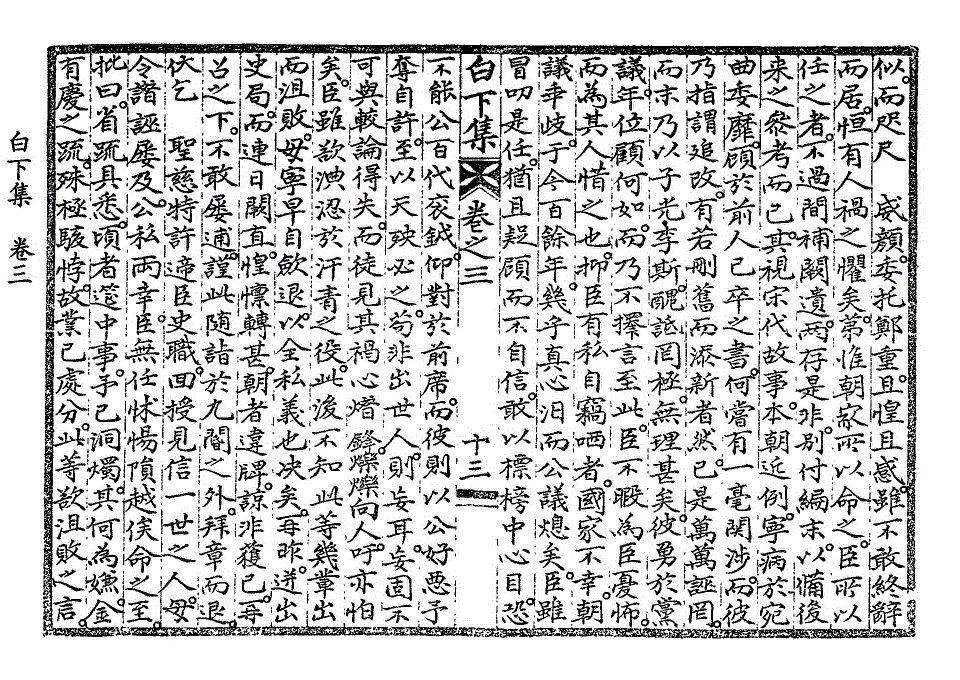 似而咫尺 威顔委托鄭重且惶且感雖不敢終辭
而居恒有人禍之懼矣第惟朝家所以命之臣所以
任之者不過間補闕遺兩存是非別付編末以備後
來之叅考而已其視宋代故事本朝近例寧病於宛
曲委靡顧於前人已卒之書何嘗有一毫關涉而彼
乃指謂追改有若刪舊而添新者然已是萬萬誣罔
而末乃以子光李斯醜詆罔極無理甚矣彼勇於黨
議年位顧何如而乃不擇言至此臣不暇為臣憂怖
而為其人惜之也抑臣有私自竊哂者國家不幸朝
議乖歧于今百餘年幾乎真心汨而公議熄矣臣雖
冒叨是任猶且趑顧而不自信敢以標榜中心目恐
白下集 卷之三 十三
不能公百代衮鉞仰對於前席而彼則以公好惡予
奪自許至以天殃必之苟非出世人則妄耳妄固不
可與較論得失而徒見其禍心熸 鋒爍爍向人吁亦怕
矣臣雖欲淟涊於汗青之役此後不知此等幾輩出
而沮敗毋寧早自歛退以全私義也决矣再昨迸出
史局而連日闕直惶懔轉甚朝者違牌諒非獲已再
召之下不敢屢逋謹此随詣於九閽之外拜章而退
伏乞 聖慈特許遞臣史職回授見信一世之人毋
令譖誣屢及公私兩幸臣無任怵惕隕越俟命之至
批曰省䟽具悉頃者筵中事予已洞燭其何為嫌金
有慶之䟽殊極駭悖故業已處分此等欲沮敗之言
白下集 卷三